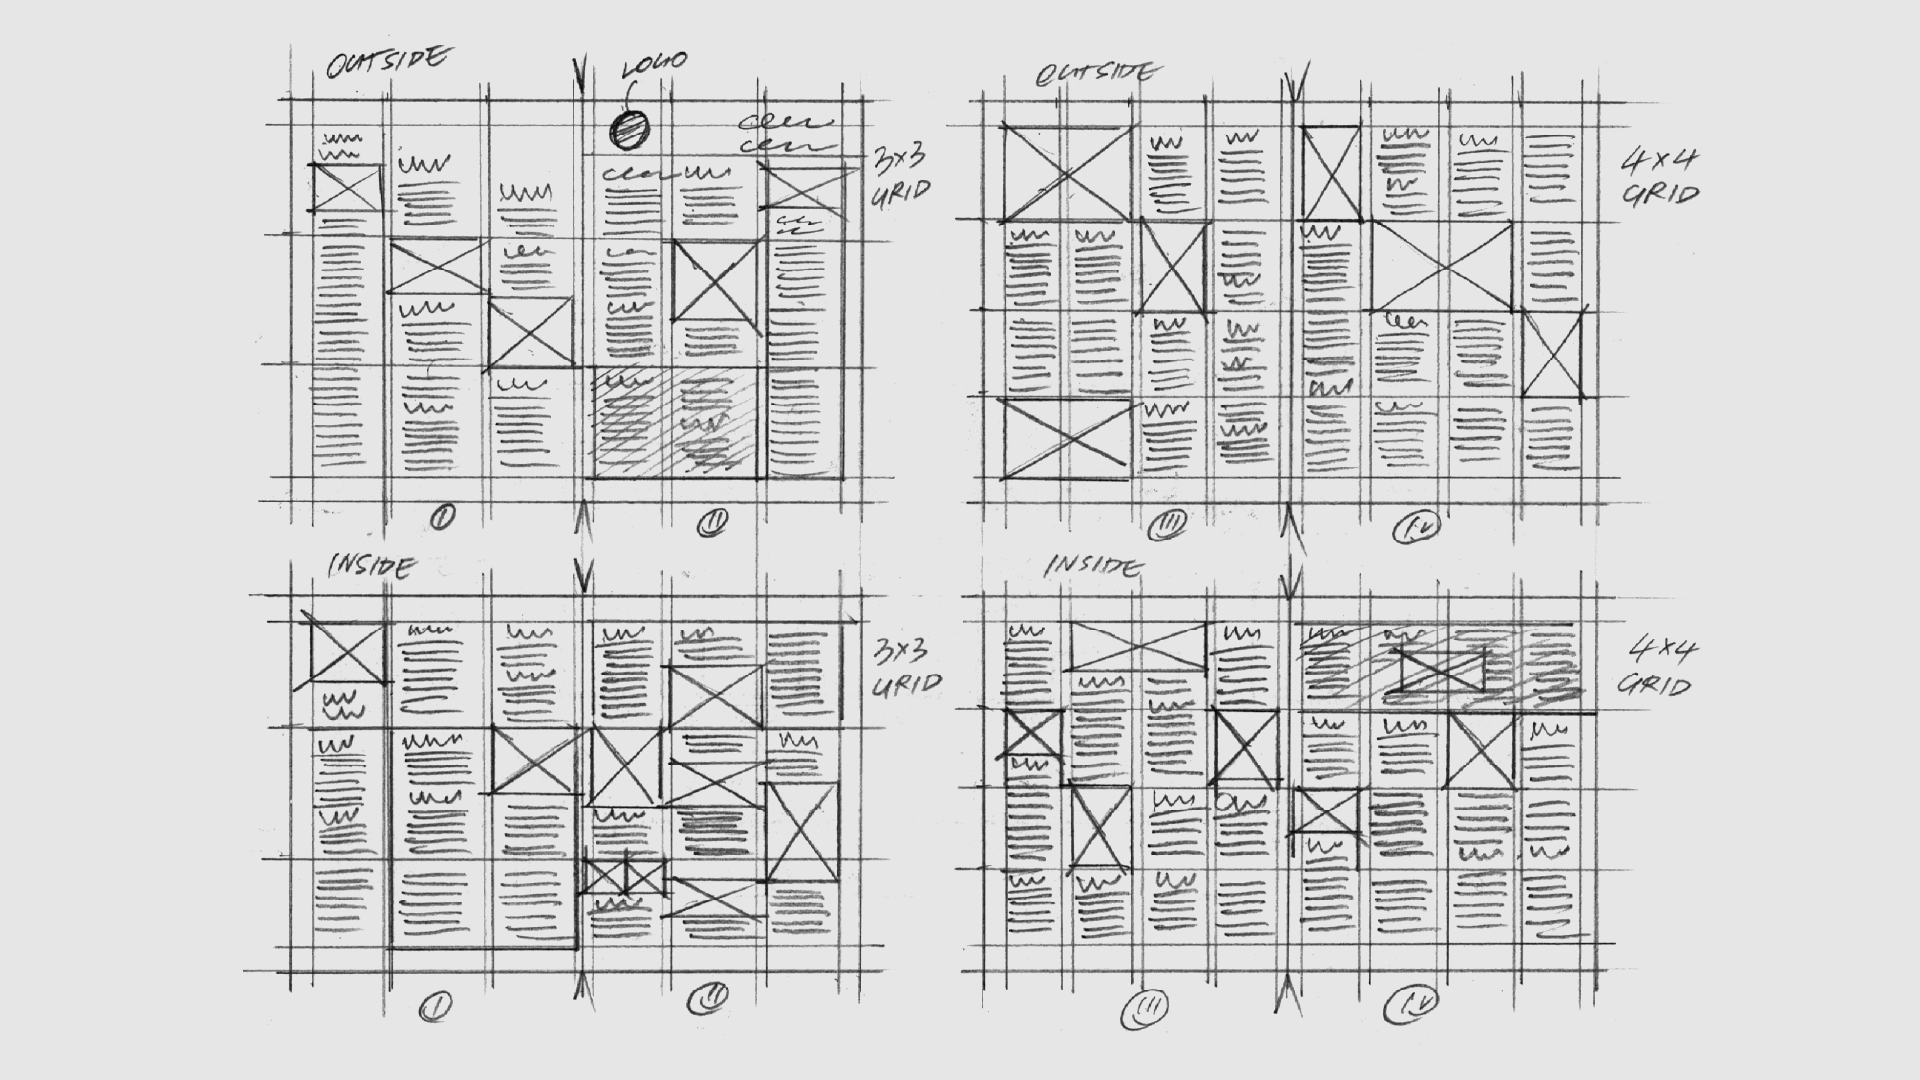 OUTSIDE
LOGO
3x3
GRID
I
II
OUTSIDE
4x4
GRID
III
IV
INSIDE
3x3
GRID
I
II
INSIDE
4x4
GRID
III
IV